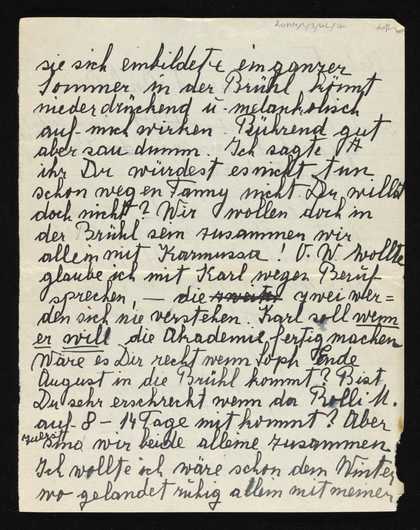 sie sich einbildete ein ganzer
Sommer in der Brühl könnt
niederdrückend u. melancholisch
auf mich wirken. Rührend gut
aber sau dumm. Ich sagte
ihr Du würdest es nicht tun
schon wegen Fanny nicht Du willst
doch nicht? Wir wollen doch in
der Brühl sein zusammen wir
allein mit Karmussa! O. W. wollte
glaube ich mit Karl wegen Beruf
sprechen, — die zwei wer=
den sich nie verstehen. Karl soll wenn
er will die Akademie fertig machen
Wäre es Dir recht wenn Soph Ende
August in die Brühl kommt? Bist
Du sehr erschreckt wenn da Rolli M.
auf 8 – 14 Tage mit kommt? Aber
zuerst
sind wir beide alleine zusammen
Ich wollte ich wäre schon den Winter
wo gelandet ruhig allein mit meinen